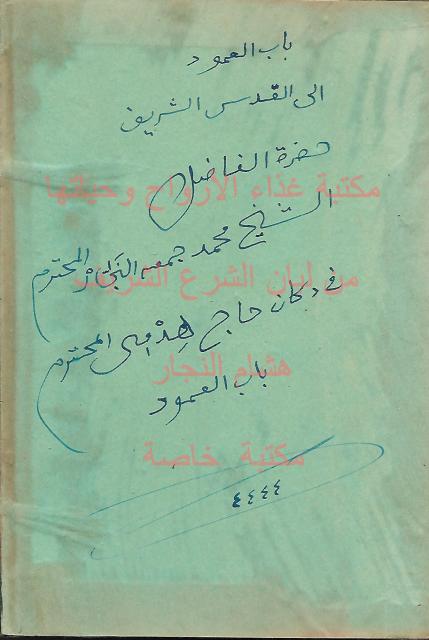 باب العمود
الى القدس الشريف
حضرة الفاضل
مكتبة غذاء الأرواح وحياتها
الشيخ محمد جمعه النجار المحترم
من لبان الشرع الشريف
في دكان حاج المحترم
هشام النجار
باب العمود
مكتبة خاصة
٤٤٤٤